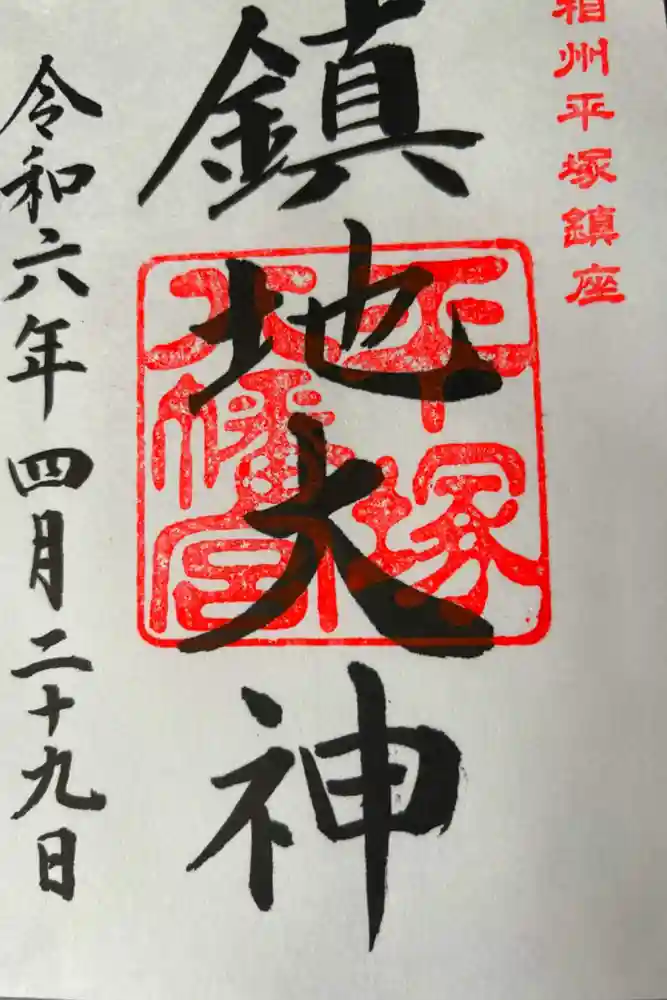 相州平塚鎮座
鎮地大神
平塚
八幡宮
令和六年四月二十九日